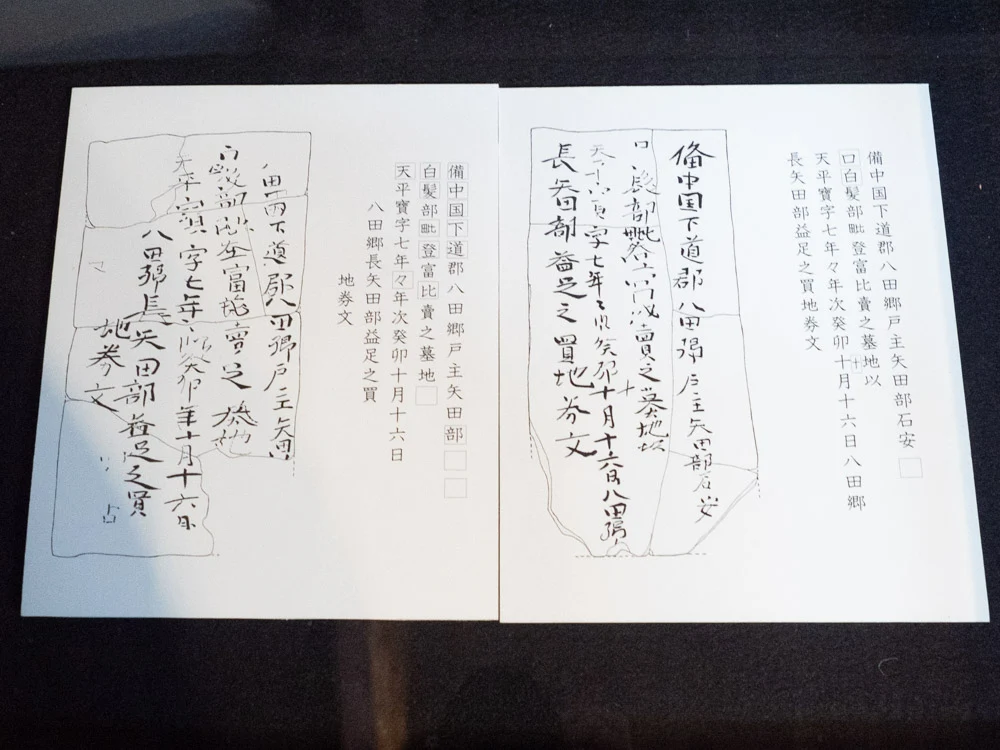 備中国下道郡八田郷戸主矢田部石安□
口白髪部毗登富比賣之墓地以
天平寶字七年々年次癸卯十月十六日八田郷
長矢田部益足之買地券文
備中国下道郡八田郷戸主矢田部石安
口髪部毗登富比賣之墓地以
天平寶字七年々次癸卯十月十六日八田郷
長矢田部益足之買地券文
備中国下道郡八田郷戸主矢田部□□
白髪部毗登富比賣之墓地□
天平寶字七年々年次癸卯十月十六日
八田郷長矢田部益足之買
地券文
下道郡八田郷戸主矢田
白髪部毗登富比賣之墓地
天平寶字七年々次癸卯年十月十六日
八田郷長矢田部益足之買
地券文